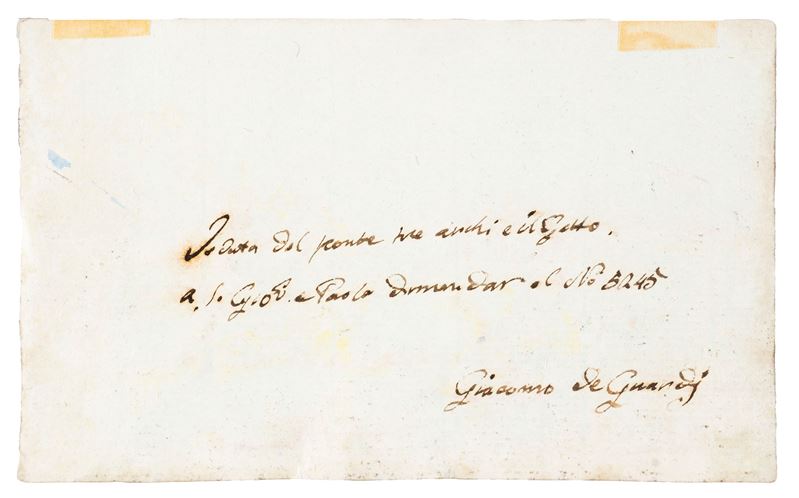 Veduta del ponte tre archi e il Getto.
a S. Gio: e Paolo dimandar al No 5245
Giacomo de Guardi